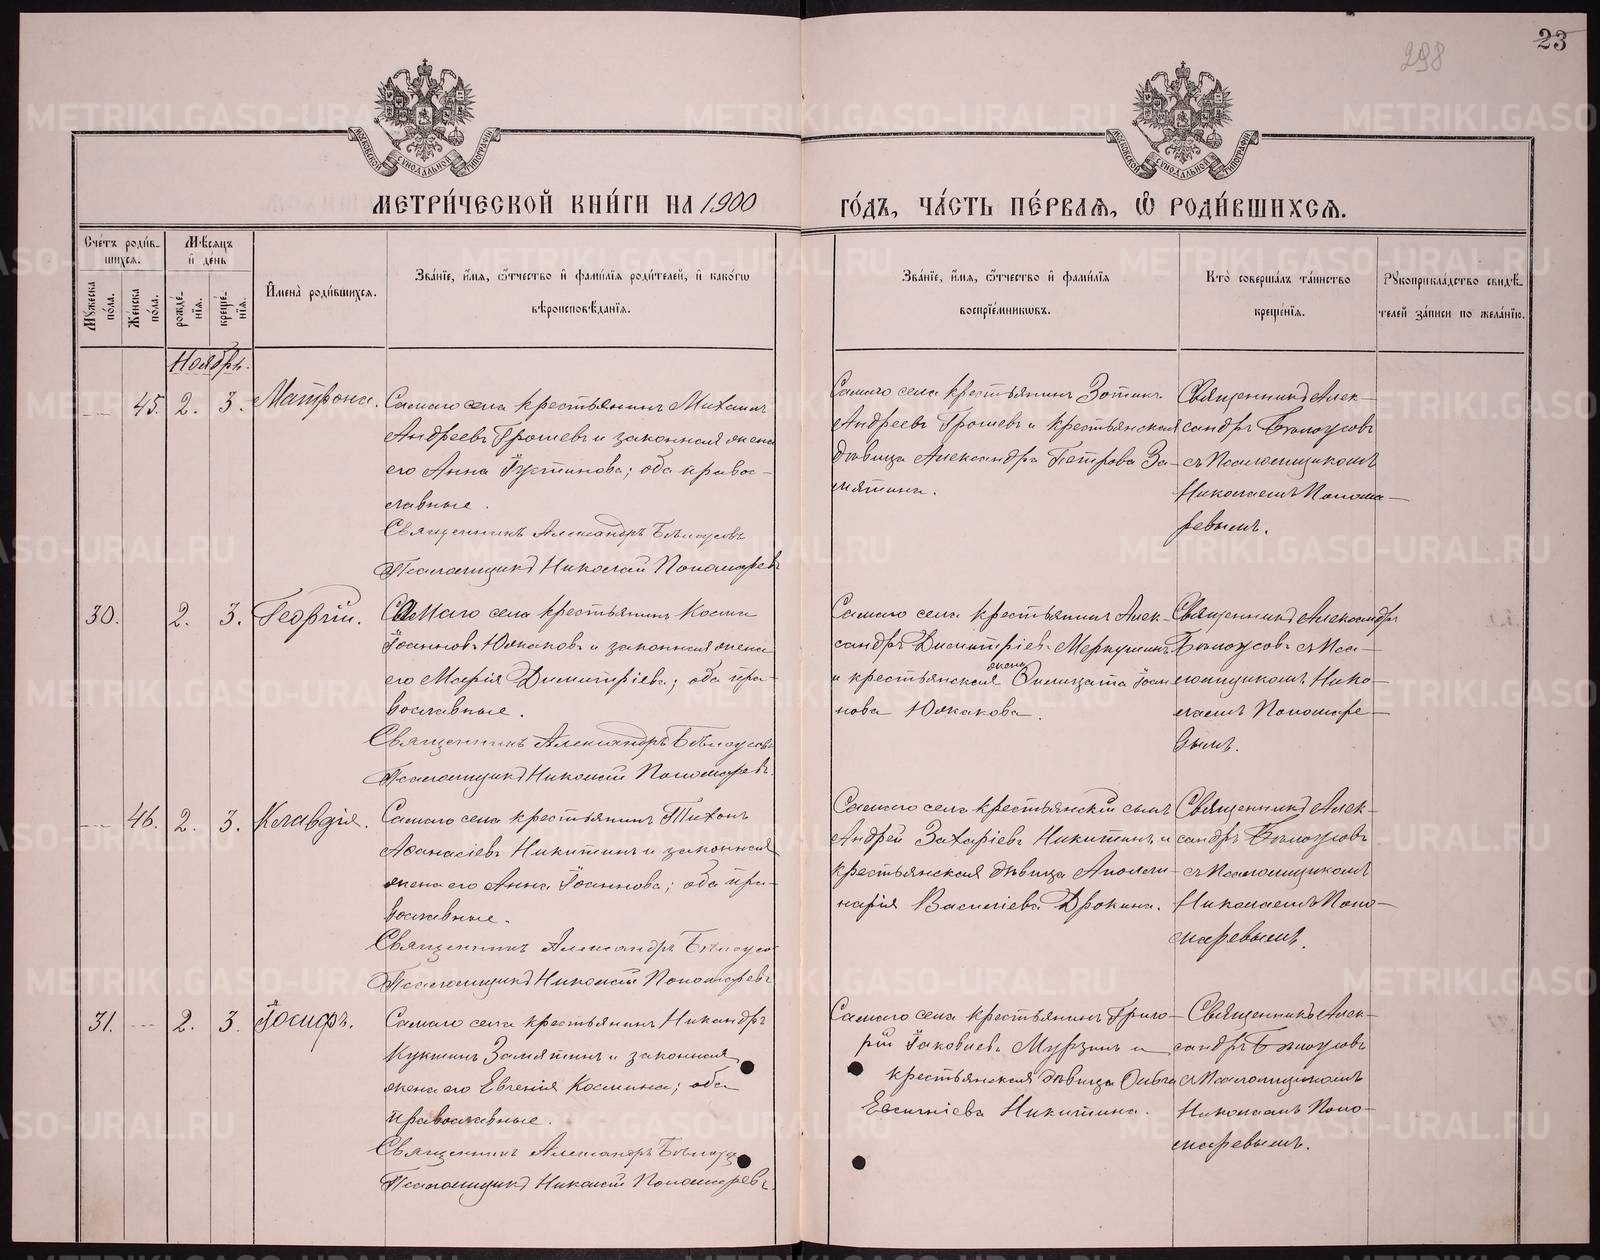 23
298
МЕТРИ́ЧЕСКОЙ КНИ́ГИ НА 1900
ГО́ДЪ, ЧА́СТЬ ПЕ́РВАЯ, Ѡ РОДИ́ВШИХСЯ.
Сче́тъ роди́в-
шихся.
Му́жеска по́ла.
Же́нска по́ла.
Мѣ́сяцъ
и де́нь
рожде́-
нія.
креще́-
нія.
Имена̀ роди́вшихся.
Зва́ніе, и́мя, ѻ́тчество и фами́лія роди́телей, и како́гѡ
вѣроисповѣ́данія.
Зва́ніе, и́мя, ѻ́тчество и фами́лія
воспріе́мникѡвъ.
Кто̀ соверша́лъ та́инство
креще́нія.
Рукоприкла́дство свидѣ́-
телей за́писи по жела́нію.
Ноябрь.
45. 2. 3. Матрона.
Самаго села крестьянинъ Михаилъ
Андреевъ Грошевъ и законная жена
его Анна Іустинова; оба правос-
лавные.
Священникъ Александръ Бѣлоусовъ
Псаломщикъ Николай Пономаревъ
Самаго села крестьянинъ Зотикъ
Андреевъ Грошевъ и крестьянская
дѣвица Александра Петрова За-
мятина.
Священникъ Алек-
сандръ Бѣлоусовъ
съ Псаломщикомъ
Николаемъ Понома-
ревымъ.
30. 2. 3. Георгій.
Самаго села крестьянинъ Косма
Іоанновъ Южаковъ и законная жена
его Марія Димитріева; оба пра-
вославные.
Священникъ Александръ Бѣлоусовъ
Псаломщикъ Николай Пономаревъ.
Самаго села крестьянинъ Алек-
сандръ Димитріевъ Меркушинъ
и крестьянская жена Олимпіада Іоан-
нова Южакова.
Священникъ Александръ
Бѣлоусовъ съ Пса-
ломщикомъ Нико-
лаемъ Пономаре-
вымъ.
46. 2. 3. Клавдія.
Самаго села крестьянинъ Тихонъ
Аѳанасіевъ Никитинъ и законная
жена его Анна Іоаннова; оба пра-
вославные.
Священникъ Александръ Бѣлоусо
Псаломщикъ Николай Пономаревъ
Самаго села крестьянскій сынъ
Андрей Захаріевъ Никитинъ и
крестьянская дѣвица Аполли-
нарія Василіева Дрокина.
Священникъ Алек-
сандръ Бѣлоусовъ
съ Псаломщикомъ
Николаемъ Поно-
маревымъ.
31. 2. 3. Іосифъ.
Самаго села крестьянинъ Никандръ
Кукшинъ Замятинъ и законная
жена его Евгенія Космина; оба
православные.
Священникъ Александръ Бѣлоус
Псаломщикъ Николай Пономаревъ.
Самаго села крестьянинъ Григо-
рій Іаковлевъ Мурзинъ и
крестьянская дѣвица Ольга
Евсигніева Никитина.
Священникъ Алек-
сандръ Бѣлоусовъ
съ Псаломщикомъ
Николаемъ Поно-
маревымъ.